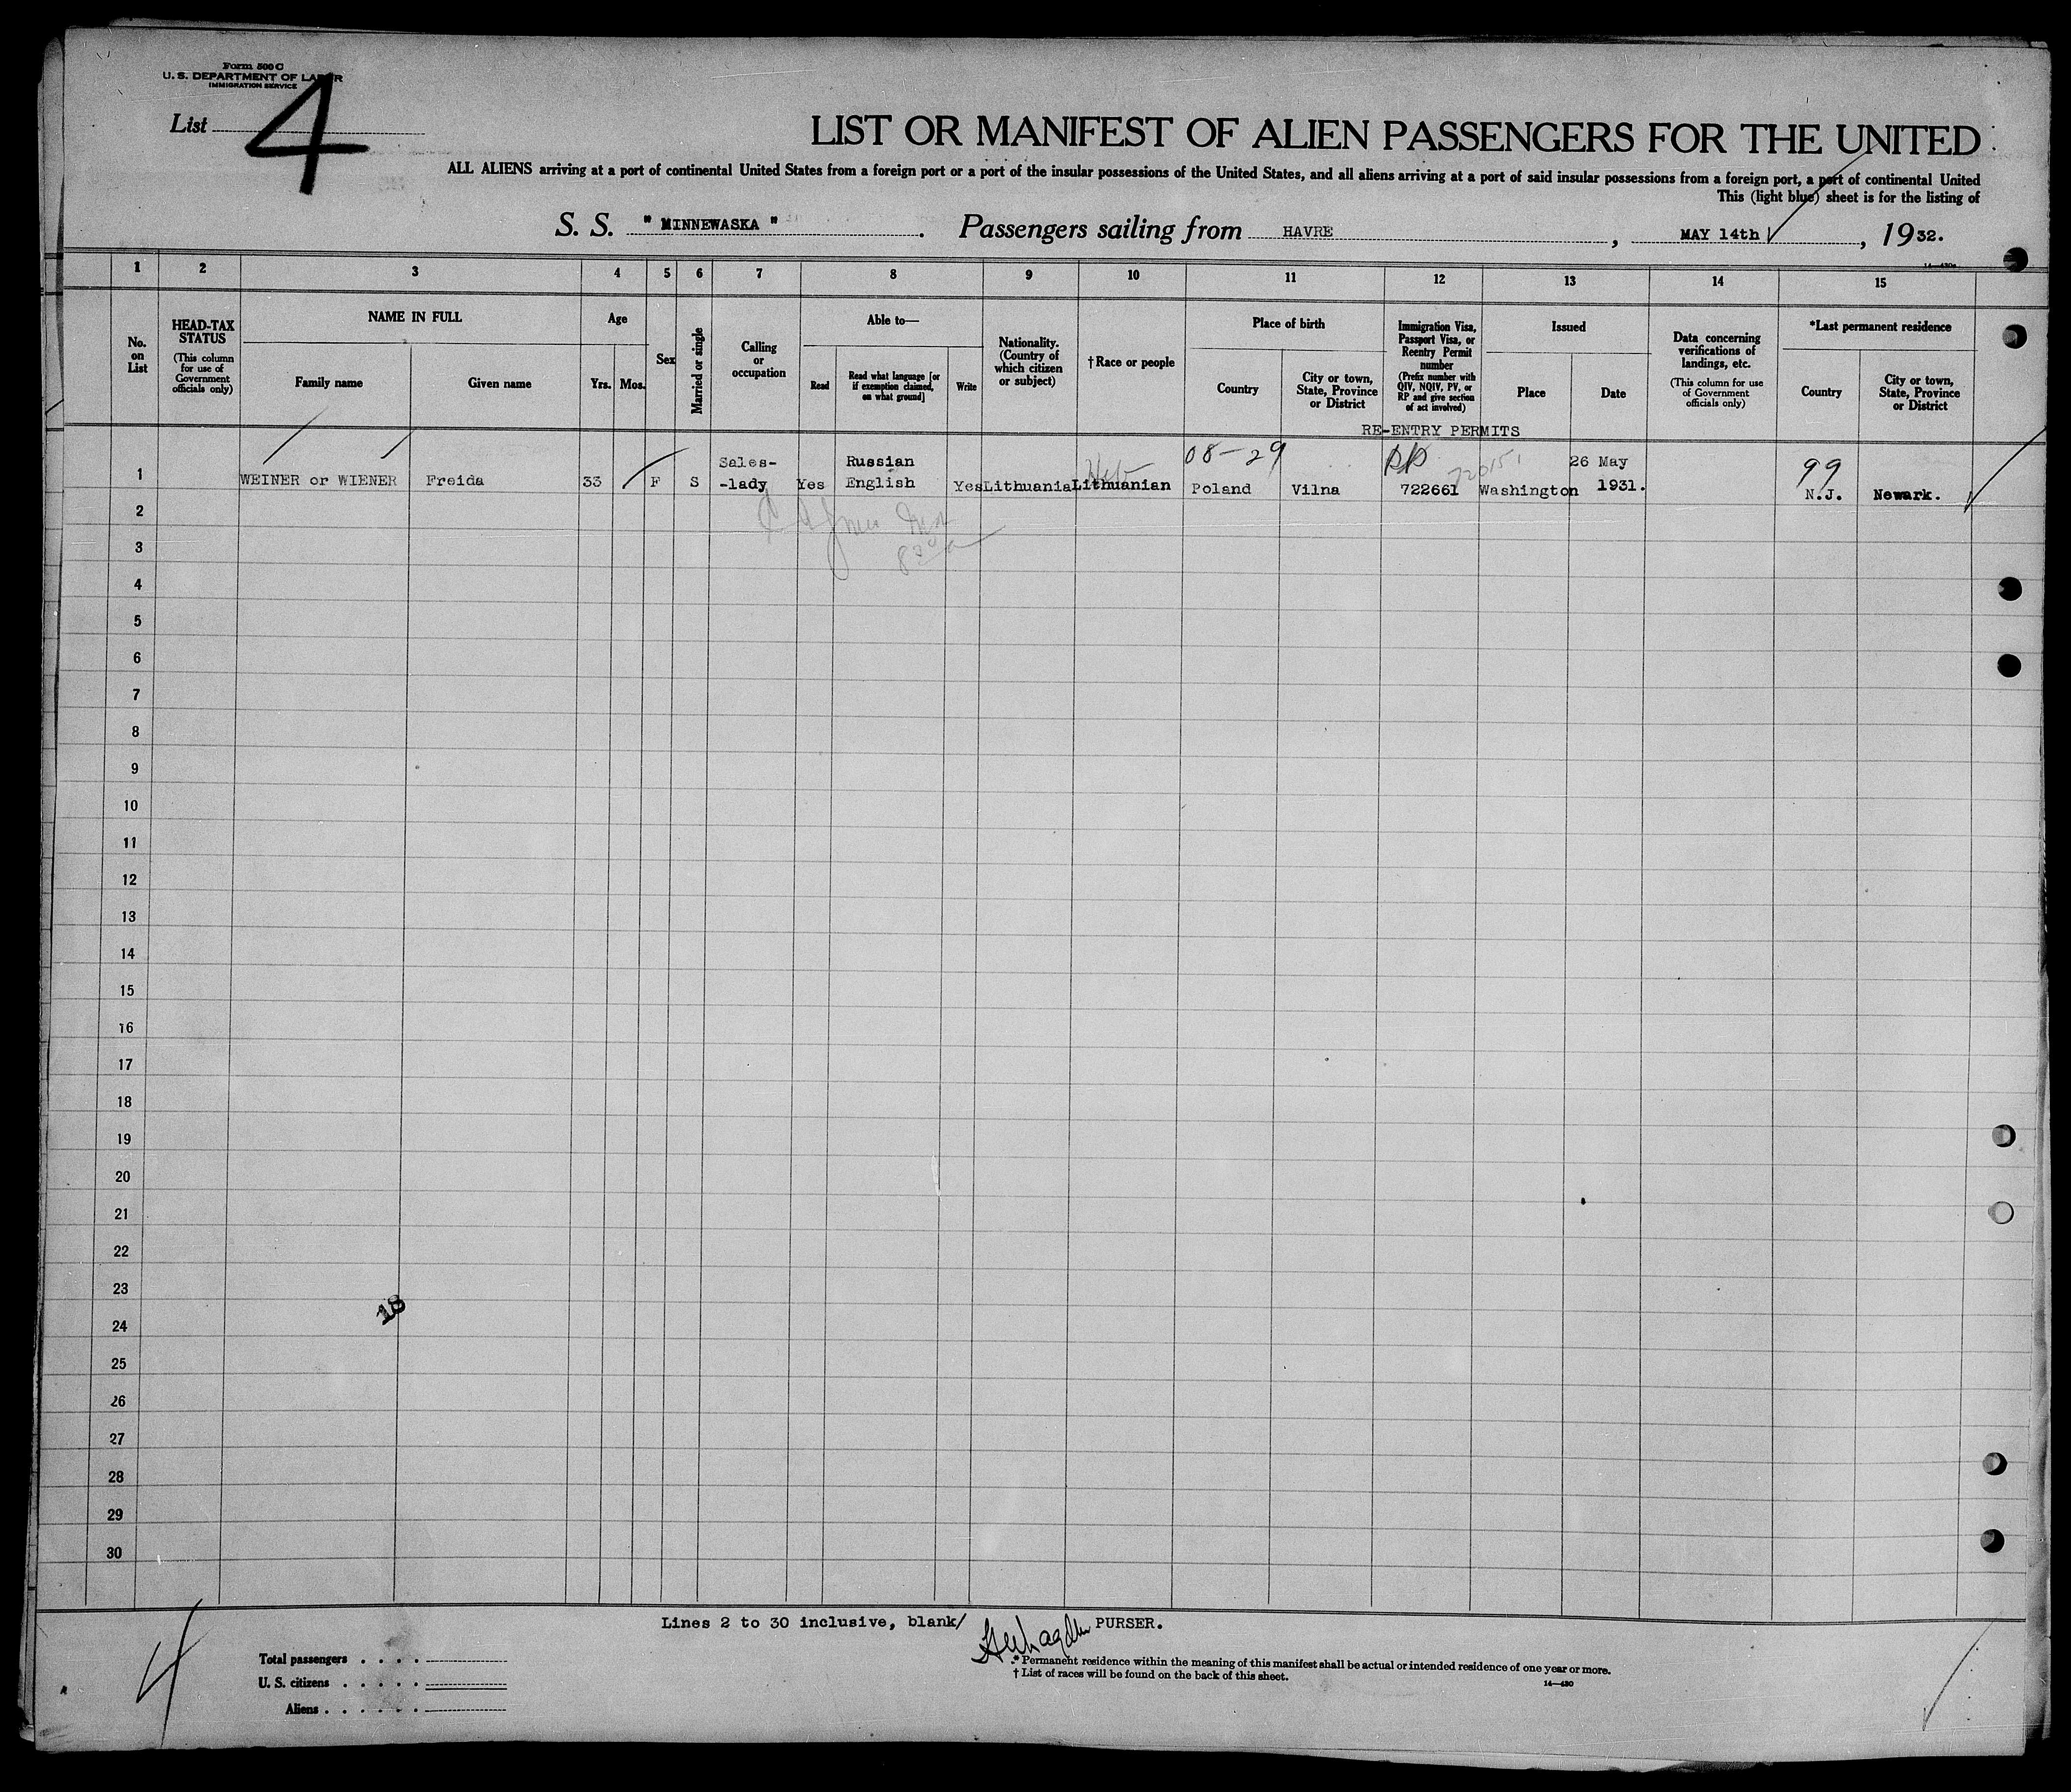 Form 500 C
U. S. DEPARTMENT OF LABOR
IMMIGRATION SERVICE
List 4
LIST OR MANIFEST OF ALIEN PASSENGERS FOR THE UNITED
ALL ALIENS arriving at a port of continental United States from a foreign port or a port of the insular possessions of the United States, and all aliens arriving at a port of said insular possessions from a foreign port, a port of continental United
This (light blue) sheet is for the listing of
S. S. " MINNEWASKA ". Passengers sailing from HAVRE, MAY 14th, 1932.
1 2 3 4 5 6 7 8 9 10 11 12 13 14 15
No. on List
HEAD-TAX STATUS
(This column for use of Government officials only)
NAME IN FULL
Family name
Given name
Age
Yrs. Mos.
Sex
Married or single
Calling or occupation
Able to—
Read
Read what language [or if exemption claimed, on what ground]
Write
Nationality. (Country of which citizen or subject)
† Race or people
Place of birth
Country
City or town, State, Province or District
Immigration Visa, Passport Visa, or Reentry Permit number
(Prefix number with QIV, NQIV, PV, or RP and give section of act involved)
Issued
Place
Date
Data concerning verifications of landings, etc.
(This column for use of Government officials only)
*Last permanent residence
Country
City or town, State, Province or District
RE-ENTRY PERMITS
1 WEINER or WIENER Freida 33 F S Sales- -lady Yes Russian English Yes Lithuania Lithuanian 08-29 Poland Vilna 722661 Washington 26 May 1931. 99 N.J. Newark.
2
3
4
5
6
7
8
9
10
11
12
13
14
15
16
17
18
19
20
21
22
23
18
24
25
26
27
28
29
30
Lines 2 to 30 inclusive, blank/ PURSER.
4
Total passengers . . . .
U. S. citizens . . . . .
Aliens . . . . . .
* Permanent residence within the meaning of this manifest shall be actual or intended residence of one year or more.
† List of races will be found on the back of this sheet.
14—430